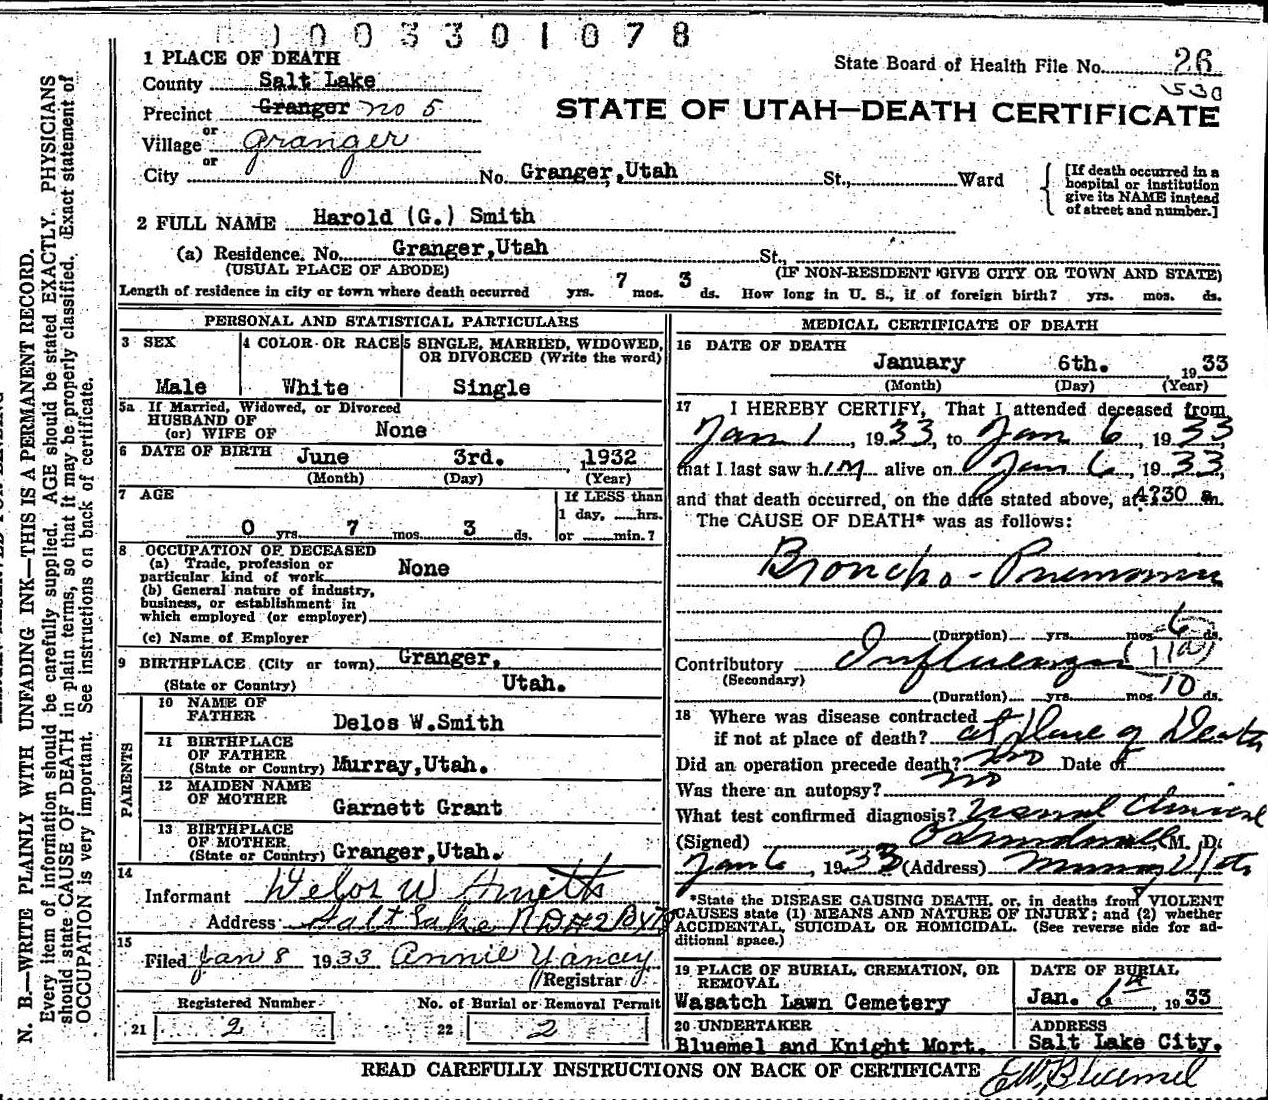 0003301078
1 PLACE OF DEATH
State Board of Health File No. 26
530
County Salt Lake
Precinct Granger no 5
STATE OF UTAH—DEATH CERTIFICATE
or
Village Granger
or
City No. Granger, Utah St., Ward
[If death occurred in a
hospital or institution
give its NAME instead
of street and number.]
2 FULL NAME Harold (G.) Smith
(a) Residence. No. Granger, Utah St.,
(USUAL PLACE OF ABODE) (IF NON-RESIDENT GIVE CITY OR TOWN AND STATE)
Length of residence in city or town where death occurred yrs. 7 mos. 3 ds. How long in U. S., if of foreign birth? yrs. mos. ds.
PERSONAL AND STATISTICAL PARTICULARS
3 SEX
Male
4 COLOR OR RACE
White
5 SINGLE, MARRIED, WIDOWED,
OR DIVORCED (Write the word)
Single
5a If Married, Widowed, or Divorced
HUSBAND OF
(or) WIFE OF None
6 DATE OF BIRTH June 3rd. , 1932
(Month) (Day) (Year)
7 AGE
0 yrs. 7 mos. 3 ds.
If LESS than
1 day, hrs.
or min.?
8 OCCUPATION OF DECEASED
(a) Trade, profession or
particular kind of work None
(b) General nature of industry,
business, or establishment in
which employed (or employer)
(c) Name of Employer
9 BIRTHPLACE (City or town) Granger,
(State or Country) Utah.
PARENTS
10 NAME OF
FATHER Delos W.Smith
11 BIRTHPLACE
OF FATHER
(State or Country) Murray,Utah.
12 MAIDEN NAME
OF MOTHER Garnett Grant
13 BIRTHPLACE
OF MOTHER
(State or Country) Granger,Utah.
14
Informant Delos W Smith
Address Salt Lake
15
Filed Jan 8 1933 Annie Yancey
Registrar
Registered Number
21 2
No. of Burial or Removal Permit
22 2
MEDICAL CERTIFICATE OF DEATH
16 DATE OF DEATH
January 6th. 1933
(Month) (Day) (Year)
17 I HEREBY CERTIFY, That I attended deceased from
Jan 1, 1933, to Jan 6, 1933
that I last saw him alive on Jan 6, 1933,
and that death occurred, on the date stated above, at 4:30 a.m.
The CAUSE OF DEATH* was as follows:
Broncho-Pneumonia
(Duration) yrs. mos. 6 ds.
Contributory Influenza (11a)
(Secondary)
(Duration) yrs. mos. 10 ds.
18 Where was disease contracted
if not at place of death? at place of Death
Did an operation precede death? no Date of
Was there an autopsy? no
What test confirmed diagnosis? usual Clinical
(Signed) M. D.
Jan 6, 1933 (Address) Murray Utah
*State the DISEASE CAUSING DEATH, or, in deaths from VIOLENT
CAUSES state (1) MEANS AND NATURE OF INJURY; and (2) whether
ACCIDENTAL, SUICIDAL OR HOMICIDAL. (See reverse side for ad-
ditional space.)
19 PLACE OF BURIAL, CREMATION, OR
REMOVAL
Wasatch Lawn Cemetery
DATE OF BURIAL
Jan. 6th, 1933
20 UNDERTAKER
Bluemel and Knight Mort.
ADDRESS
Salt Lake City.
READ CAREFULLY INSTRUCTIONS ON BACK OF CERTIFICATE
EW, Bluemel
N. B.—WRITE PLAINLY WITH UNFADING INK—THIS IS A PERMANENT RECORD.
Every item of information should be carefully supplied. AGE should be stated EXACTLY. PHYSICIANS
should state CAUSE OF DEATH in plain terms, so that it may be properly classified. Exact statement of
OCCUPATION is very important. See instructions on back of certificate.